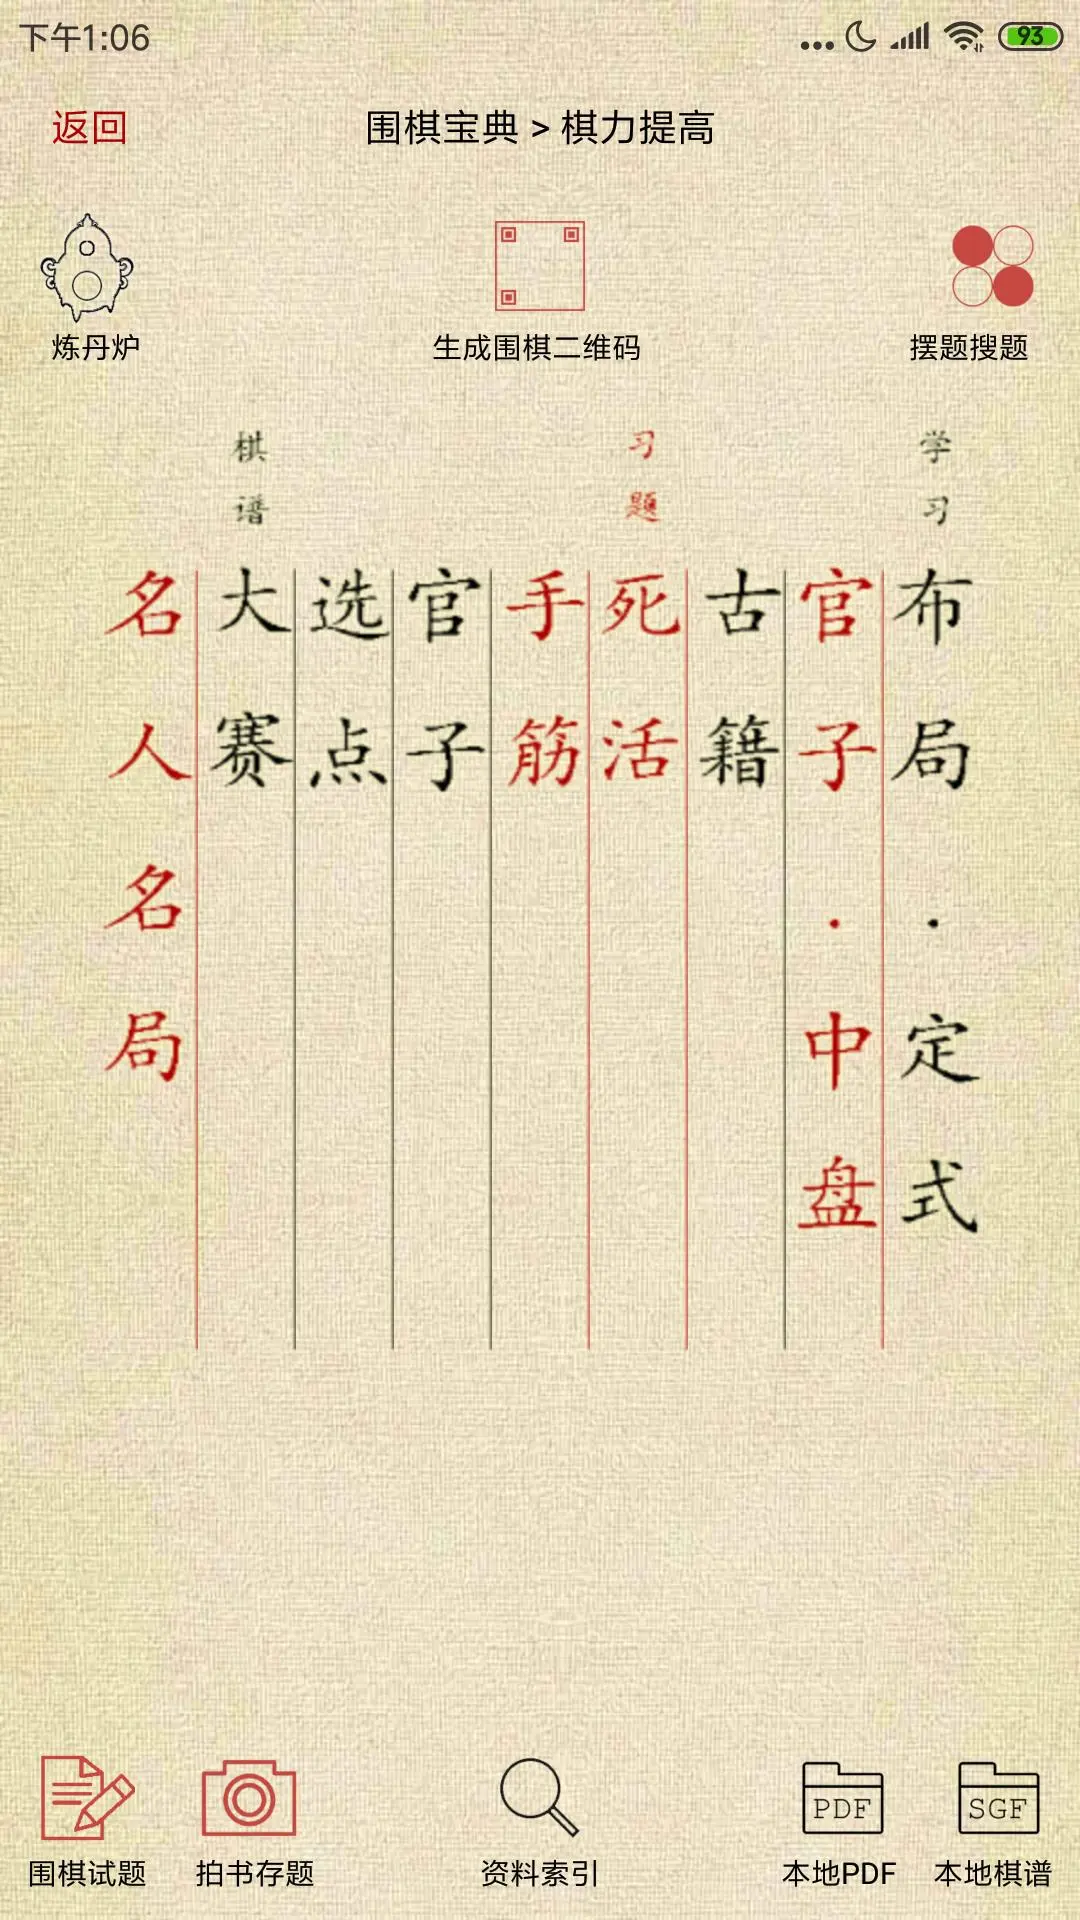 下午1:06
93
返回
围棋宝典 > 棋力提高
炼丹炉
生成围棋二维码
摆题搜题
学习
习题
棋谱
布局.定式
官子.中盘
古籍
死活
手筋
官子
选点
大赛
名人名局
PDF
SGF
围棋试题
拍书存题
资料索引
本地PDF
本地棋谱